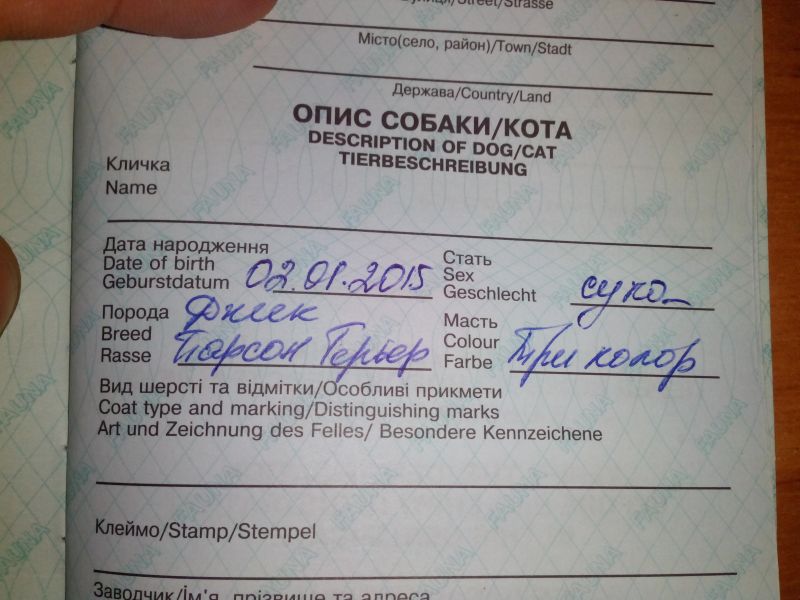 Вулиця/Street/Strasse
Місто(село, район)/Town/Stadt
Держава/Country/Land
ОПИС СОБАКИ/КОТА
DESCRIPTION OF DOG/CAT
TIERBESCHREIBUNG
Кличка
Name
Дата народження
Date of birth
Geburstdatum 02.01.2015
Стать
Sex
Geschlecht сука
Порода Джек
Breed
Rasse Парсон Терьер
Масть
Colour
Farbe Три колор
Вид шерсті та відмітки/Особливі прикмети
Coat type and marking/Distinguishing marks
Art und Zeichnung des Felles/ Besondere Kennzeichene
Клеймо/Stamp/Stempel
Заводчик/Ім'я, прізвище та адреса